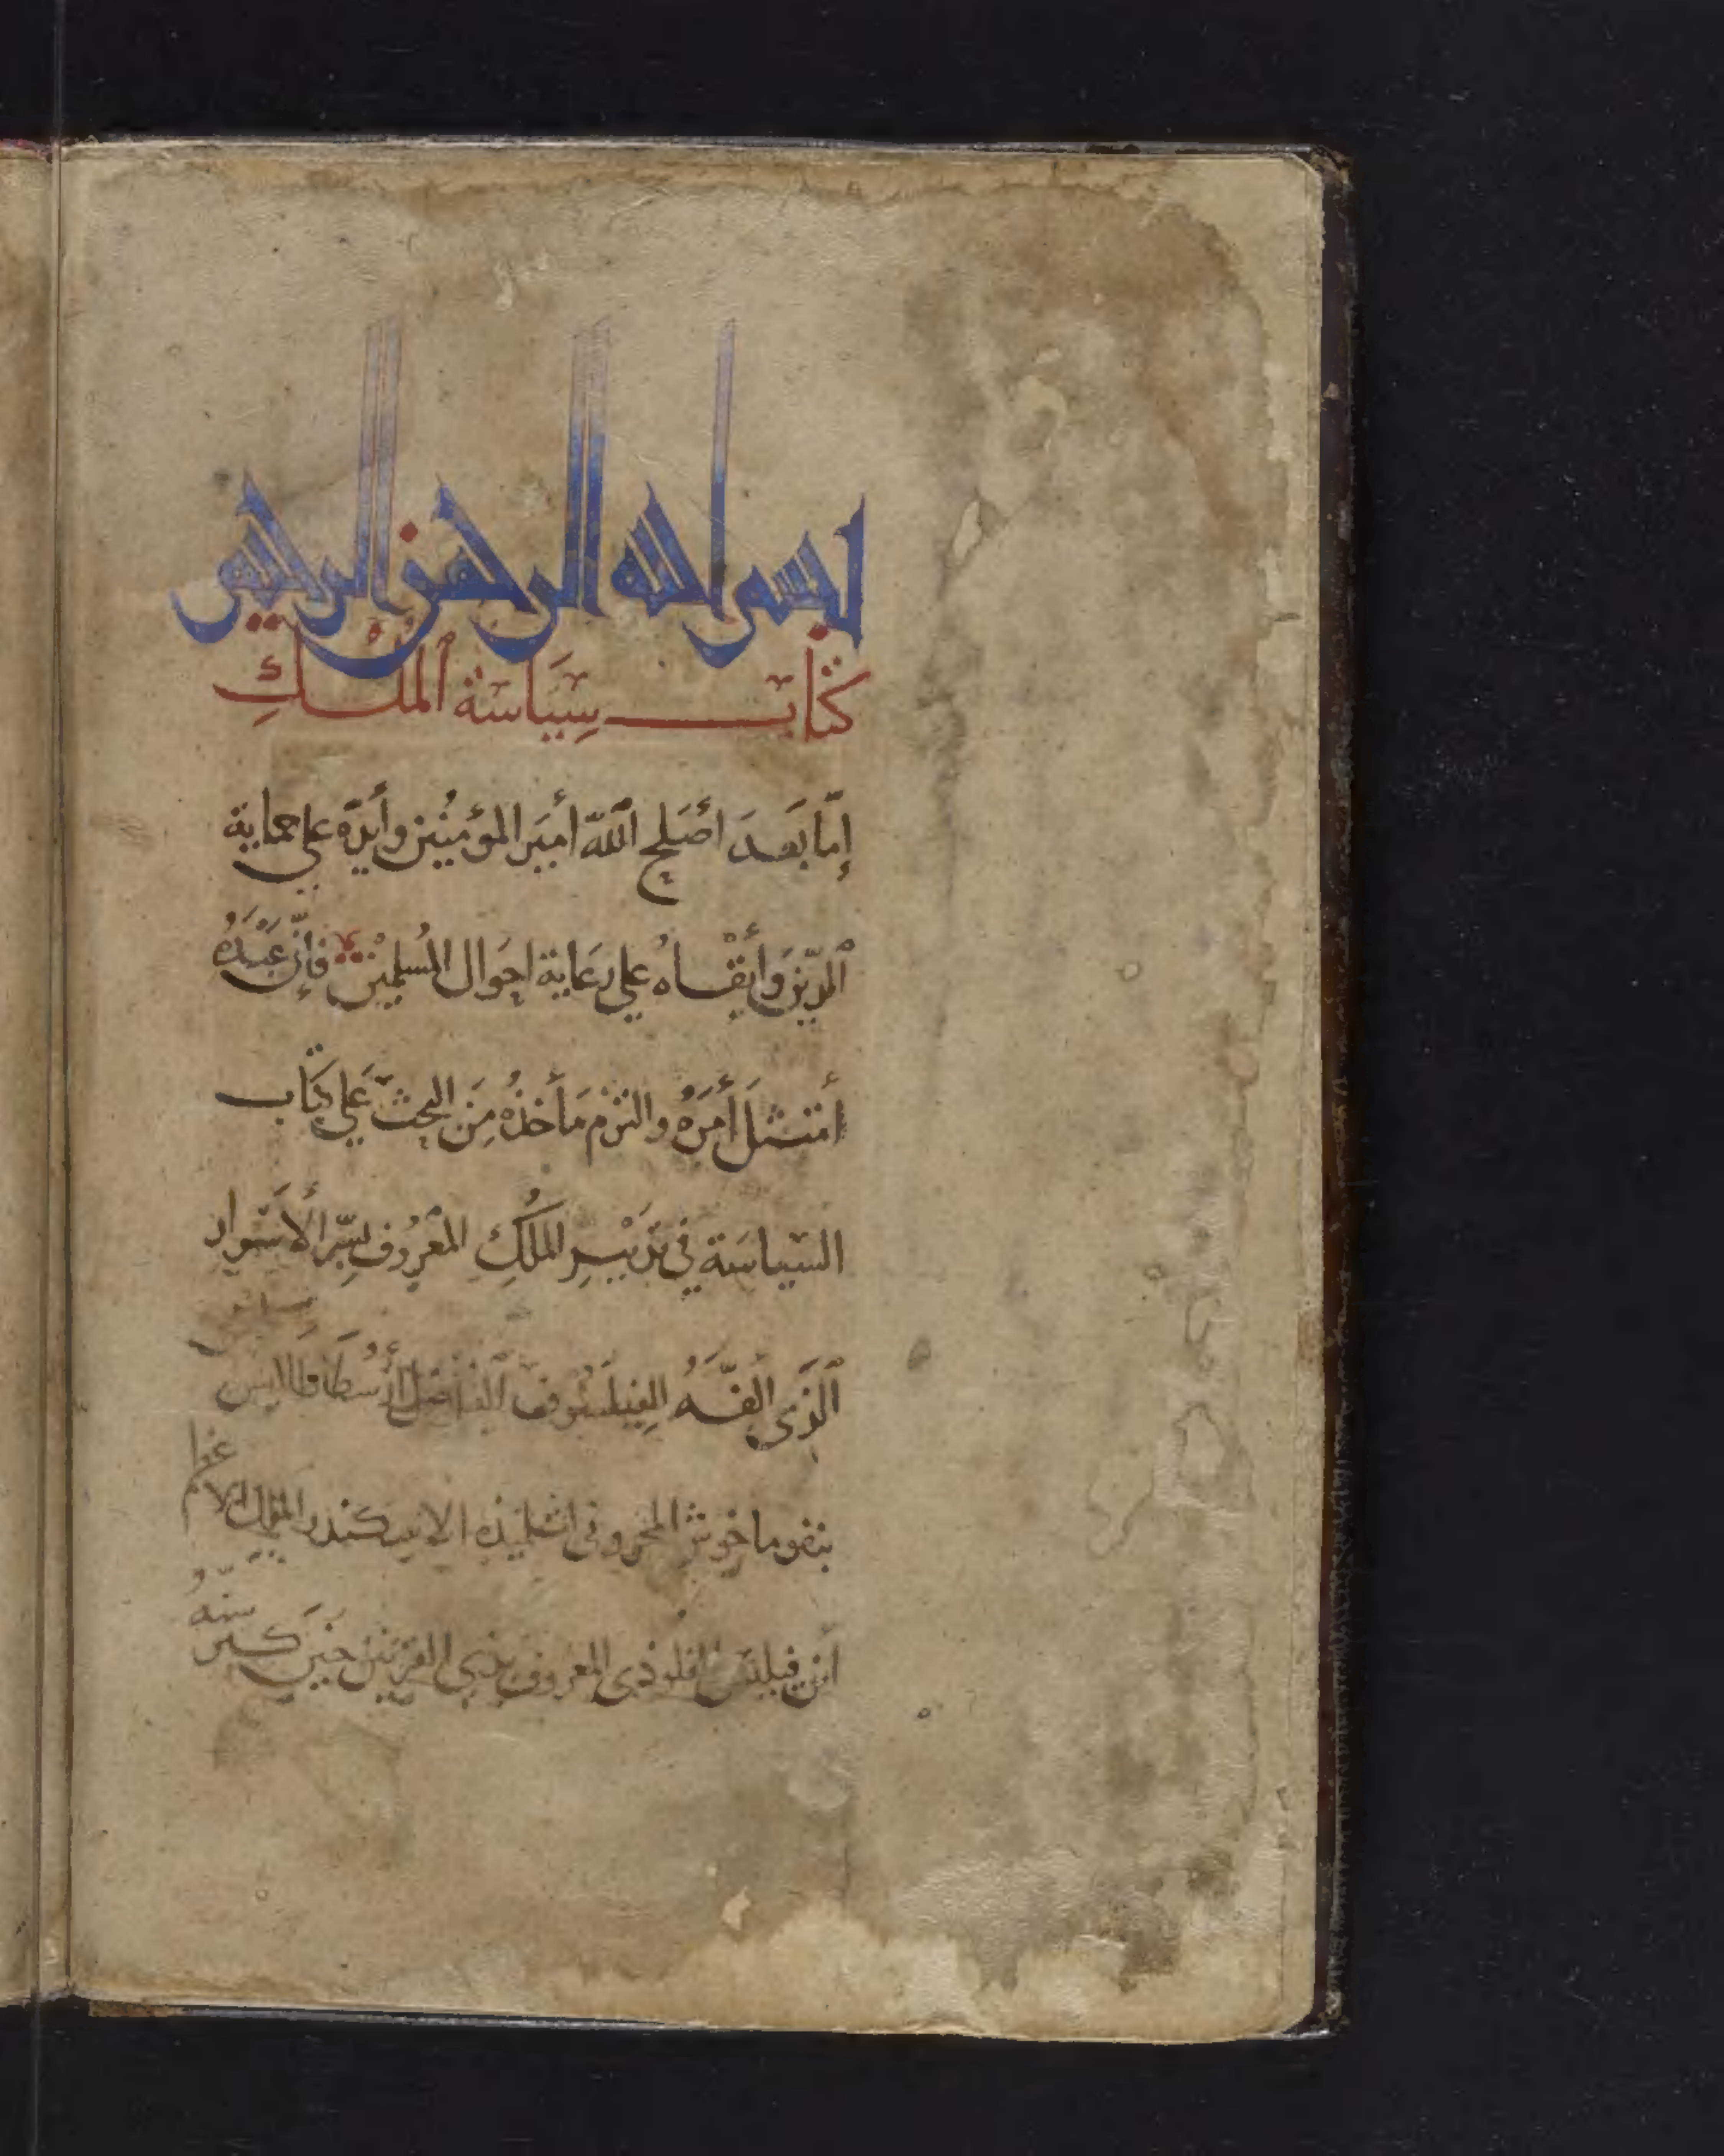 بسم الله الرحمن الرحيم
كتاب سياسة الملك
إمّا بعد أصلح الله أمير المؤمنين وأيده على حماية
الدين وأبقاه على رعاية احوال المسلمين فإن عبده
أمتثل أمره والتزم مأخذه من البحث على كتاب
السياسة في تدبير الملك المعروف بسر الأسرار
الذي ألفه الفيلسوف الفاضل أرسطاطاليس
بنقوماخوش المخروفى لتلميذه الاسكندر الملك الاعظم
أبن فيلبش اقلوذى المعروف بذي القرنين حين كبر سنه